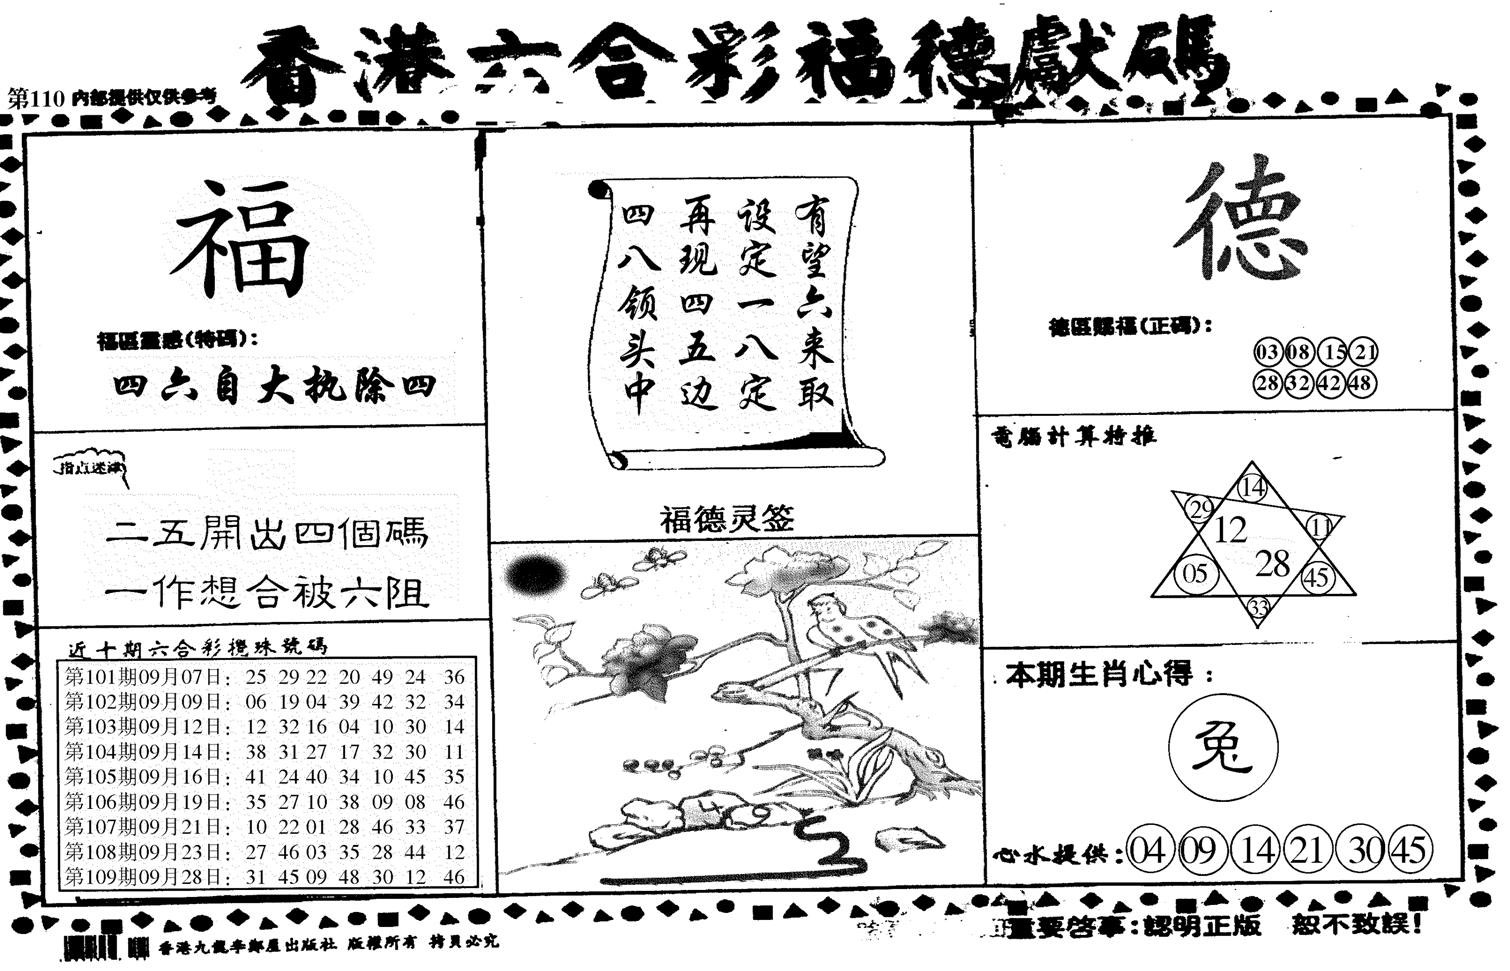 香港六合彩福德獻碼
第110 内部提供仅供参考
福
福區靈感(特碼):
四六自大执除四
指点迷津
二五開出四個碼
一作想合被六阻
近十期六合彩攪珠號碼
第101期09月07日: 25 29 22 20 49 24 36
第102期09月09日: 06 19 04 39 42 32 34
第103期09月12日: 12 32 16 04 10 30 14
第104期09月14日: 38 31 27 17 32 30 11
第105期09月16日: 41 24 40 34 10 45 35
第106期09月19日: 35 27 10 38 09 08 46
第107期09月21日: 10 22 01 28 46 33 37
第108期09月23日: 27 46 03 35 28 44 12
第109期09月28日: 31 45 09 48 30 12 46
有望六来取
设定一八定
再现四五边
四八领头中
福德灵签
4 9
德
德區賜福(正碼):
03 08 15 21
28 32 42 48
電腦計算特推
14
29 12 11
05 28 45
33
本期生肖心得:
兔
心水提供: 04 09 14 21 30 45
重要啓事:認明正版 恕不致誤!
香港九龍李鄭屋出版社 版權所有 拷貝必究